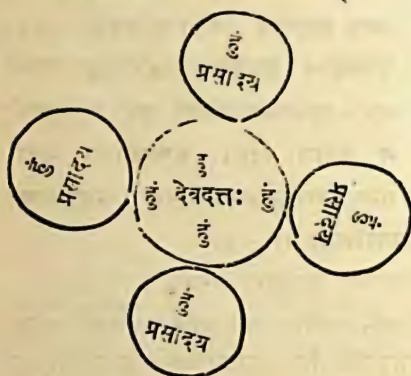 हुं
प्रसादय
हुं
प्रसादय
हुं
हुं देवदत्तः हुं
हुं
हुं
प्रसादय
हुं
प्रसादय